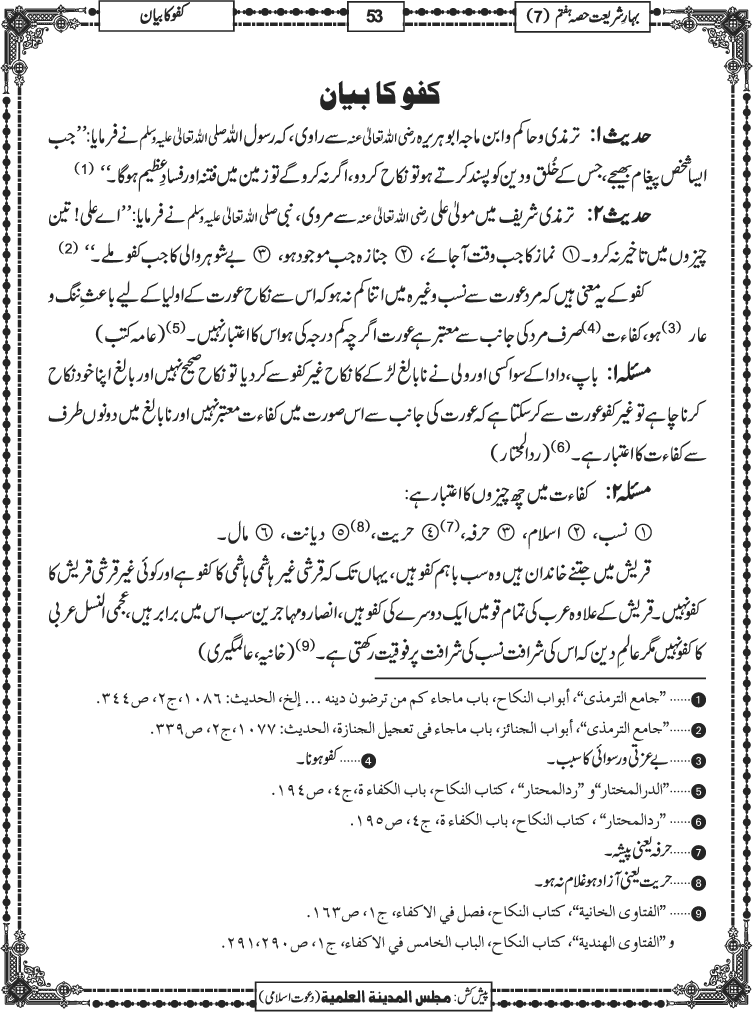 بہارِ شریعت حصہ ہفتم (7)
53
کفو کا بیان
کفو کا بیان
حدیث ۱: ترمذی و حاکم و ابن ماجہ ابوہریرہ رضی اللہ تعالیٰ عنہ سے راوی، کہ رسول اللہ صلی اللہ تعالیٰ علیہ وسلم نے فرمایا: ’’جب
ایسا شخص پیغام بھیجے، جس کے خُلق و دین کو پسند کرتے ہو تو نکاح کردو، اگر نہ کرو گے تو زمین میں فتنہ اور فسادِ عظیم ہوگا۔‘‘ (1)
حدیث ۲: ترمذی شریف میں مولیٰ علی رضی اللہ تعالیٰ عنہ سے مروی، نبی صلی اللہ تعالیٰ علیہ وسلم نے فرمایا: ’’اے علی! تین
چیزوں میں تاخیر نہ کرو۔ ① نماز کا جب وقت آجائے، ② جنازہ جب موجود ہو، ③ بے شوہر والی کا جب کفو ملے۔‘‘ (2)
کفو کے یہ معنی ہیں کہ مرد عورت سے نسب وغیرہ میں اتنا کم نہ ہو کہ اس سے نکاح عورت کے اولیا کے لیے باعثِ ننگ و
عار (3) ہو، کفاءت (4) صرف مرد کی جانب سے معتبر ہے عورت اگرچہ کم درجہ کی ہو اس کا اعتبار نہیں۔ (5) (عامہ کتب)
مسئلہ ۱: باپ، دادا کے سوا کسی اور ولی نے نابالغ لڑکے کا نکاح غیر کفو سے کردیا تو نکاح صحیح نہیں اور بالغ اپنا خود نکاح
کرنا چاہے تو غیر کفو عورت سے کرسکتا ہے کہ عورت کی جانب سے اس صورت میں کفاءت معتبر نہیں اور نابالغ میں دونوں طرف
سے کفاءت کا اعتبار ہے۔ (6) (ردالمحتار)
مسئلہ ۲: کفاءت میں چھ چیزوں کا اعتبار ہے:
① نسب، ② اسلام، ③ حرفہ، (7) ④ حریت، (8) ⑤ دیانت، ⑥ مال۔
قریش میں جتنے خاندان ہیں وہ سب باہم کفو ہیں، یہاں تک کہ قرشی غیر ہاشمی ہاشمی کا کفو ہے اور کوئی غیر قرشی قریش کا
کفو نہیں۔ قریش کے علاوہ عرب کی تمام قومیں ایک دوسرے کی کفو ہیں، انصار و مہاجرین سب اس میں برابر ہیں، عجمی النسل عربی
کا کفو نہیں مگر عالمِ دین کہ اس کی شرافت نسب کی شرافت پر فوقیت رکھتی ہے۔ (9) (خانیہ، عالمگیری)
1 ...... ’’جامع الترمذی‘‘، أبواب النکاح، باب ماجاء کم من ترضون دینہ ... إلخ، الحدیث: ١٠٨٦، ج٢، ص٣٤٤.
2 ...... ’’جامع الترمذی‘‘، أبواب الجنائز، باب ماجاء فی تعجیل الجنازة، الحدیث: ١٠٧٧، ج٢، ص٣٣٩.
3 ...... بے عزتی و رسوائی کا سبب۔ 4 ...... کفو ہونا۔
5 ...... ’’الدرالمختار‘‘ و ’’ردالمحتار‘‘، کتاب النکاح، باب الکفاء ة، ج٤، ص١٩٤.
6 ...... ’’ردالمحتار‘‘، کتاب النکاح، باب الکفاء ة، ج٤، ص١٩٥.
7 ...... حرفہ یعنی پیشہ۔
8 ...... حریت یعنی آزاد ہو غلام نہ ہو۔
9 ...... ’’الفتاوی الخانیة‘‘، کتاب النکاح، فصل في الاکفاء، ج١، ص١٦٣.
و ’’الفتاوی الهندیة‘‘، کتاب النکاح، الباب الخامس في الاکفاء، ج١، ص٢٩٠،٢٩١.
پیش کش: مجلس المدینۃ العلمیۃ (دعوت اسلامی)